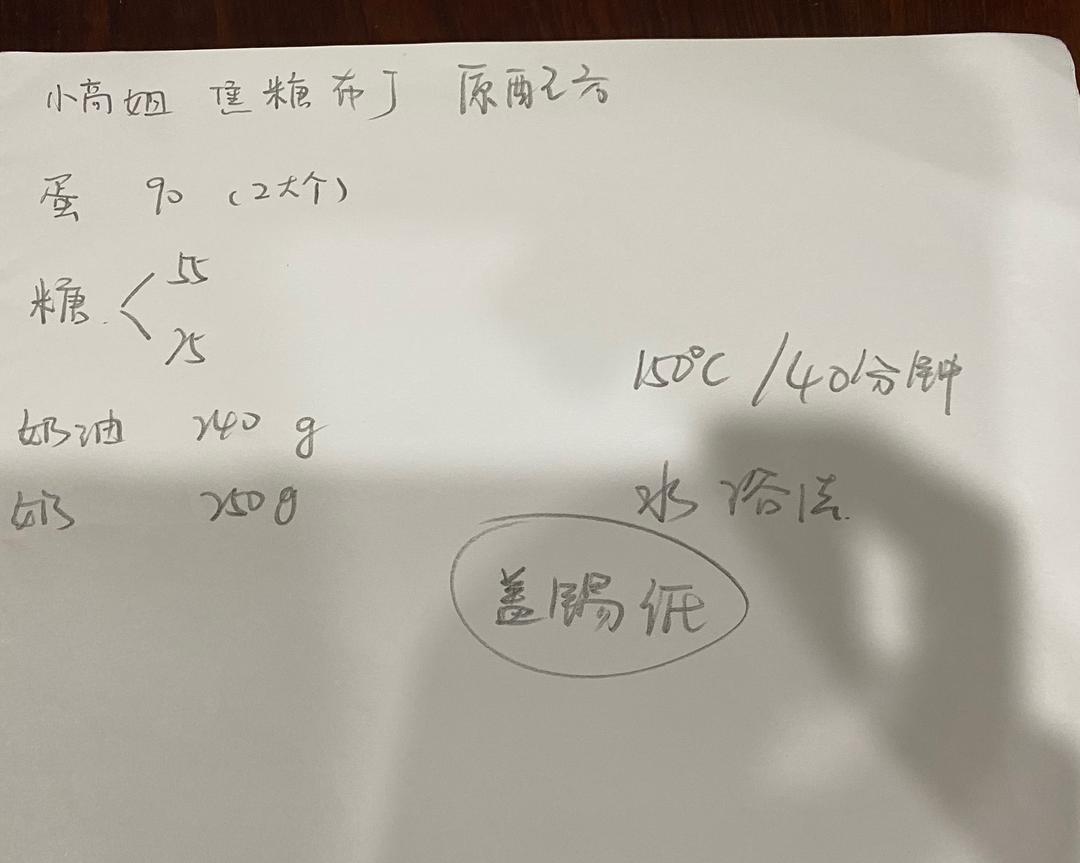 小高姐 焦糖布丁 原配方
蛋 90 (2大个)
糖 < 55
75
奶油 240 g
奶 250g
150℃ /40分钟
水浴法
盖锡纸